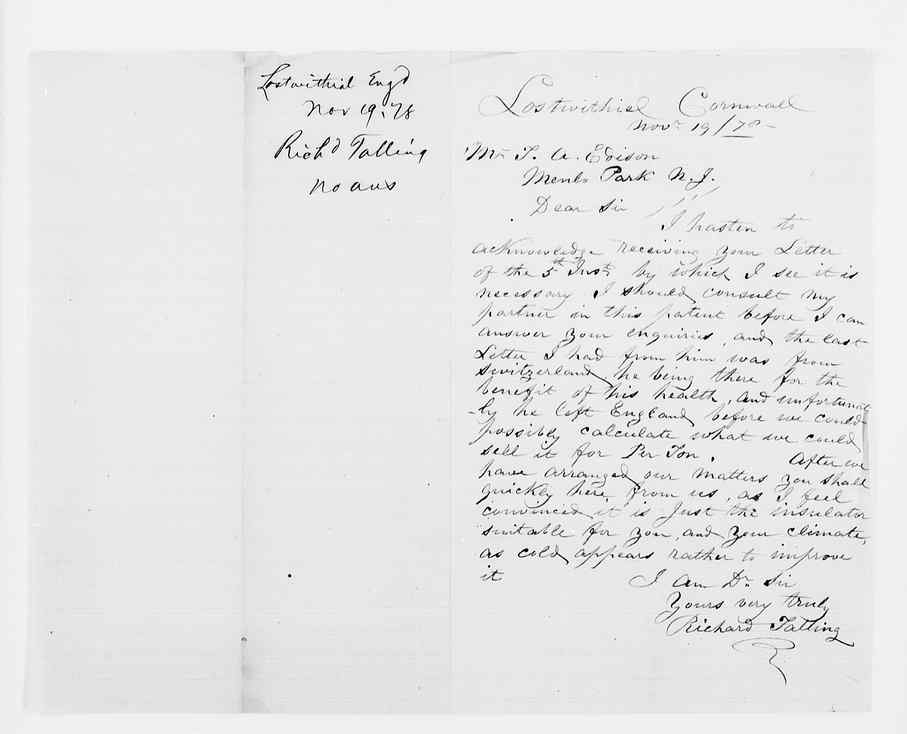 Lostwithiel Eng'd
Nov 19. 78
Rich'd Talling
no ans
Lostwithiel Cornwall
Novr 19/78-
Mr T. A. Edison
Menlo Park N.J.
Dear Sir
I hasten to
acknowledge receiving your Letter
of the 5th Inst. by which I see it is
necessary I should consult my
partner in this patent before I can
answer your enquiries, and the last
Letter I had from him was from
Switzerland he being there for the
benefit of his health, and unfortunat
-ly he left England before we could
possibly calculate what we could
sell it for Per Ton. After we
have arranged our matters you shall
quickly here from us, as I feel
convinced it is Just the insulator
suitable for you, and your climate,
as cold appears rather to improve
it
I am Dr Sir
Yours very truly
Richard Talling